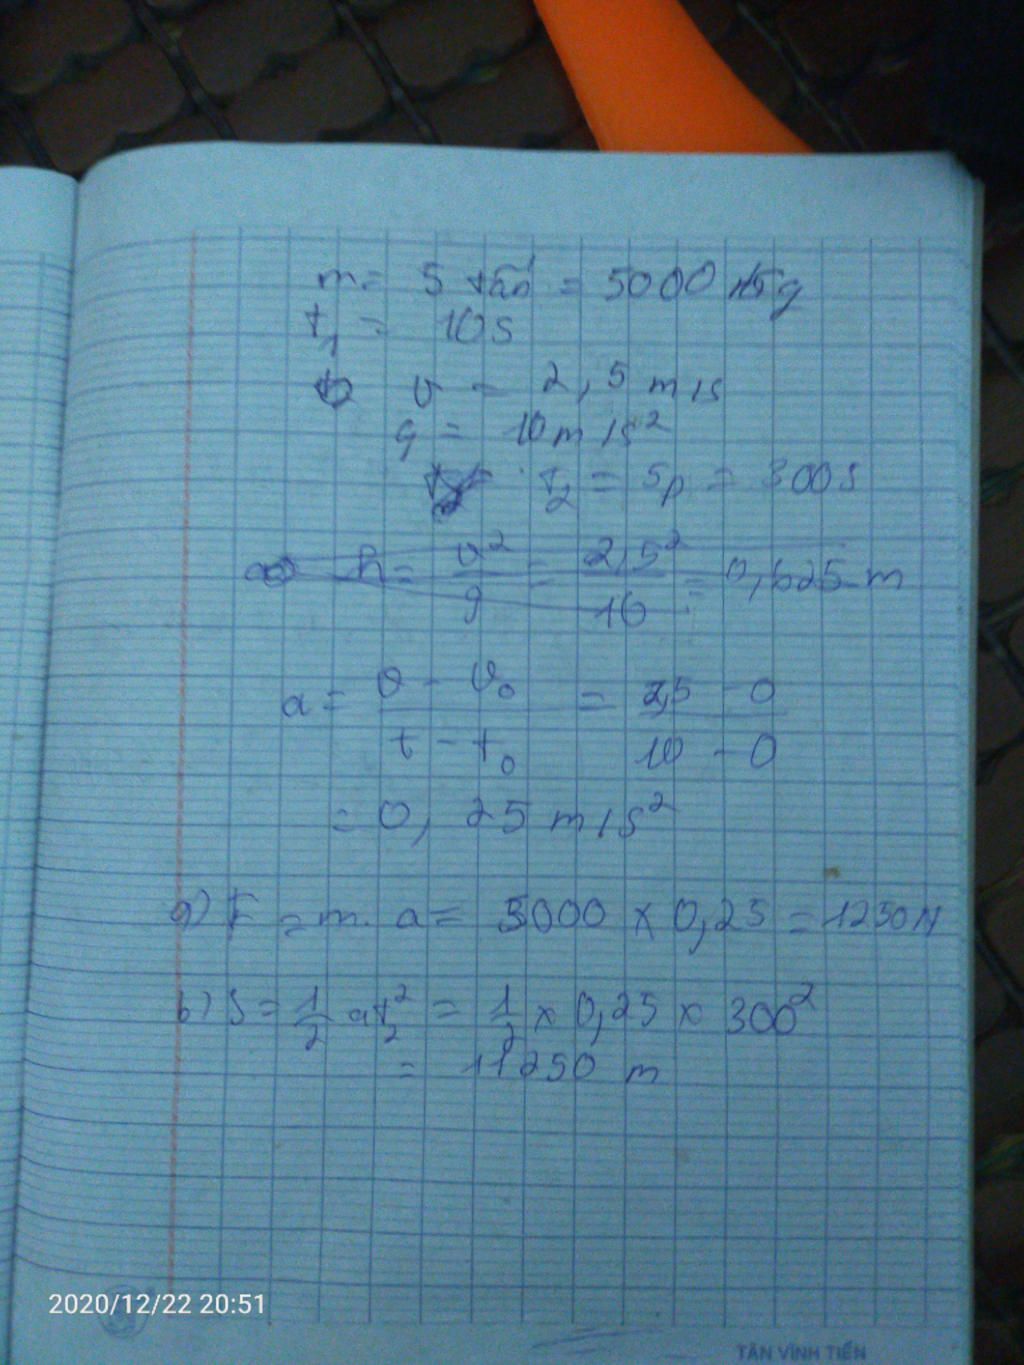 m = 5 tấn = 5000 kg
t₁ = 10s
v = 2,5 m/s
g = 10 m/s²
t₂ = 5p = 300s
h = v²/g = 2,5²/10 = 0,625 m
a = (v - v₀)/(t - t₀) = (2,5 - 0)/(10 - 0)
= 0,25 m/s²
a) F = m. a = 5000 x 0,25 = 1250N
b) S = 1/2 at₂² = 1/2 x 0,25 x 300²
= 11250 m
2020/12/22 20:51
TÂN VĨNH TIẾN